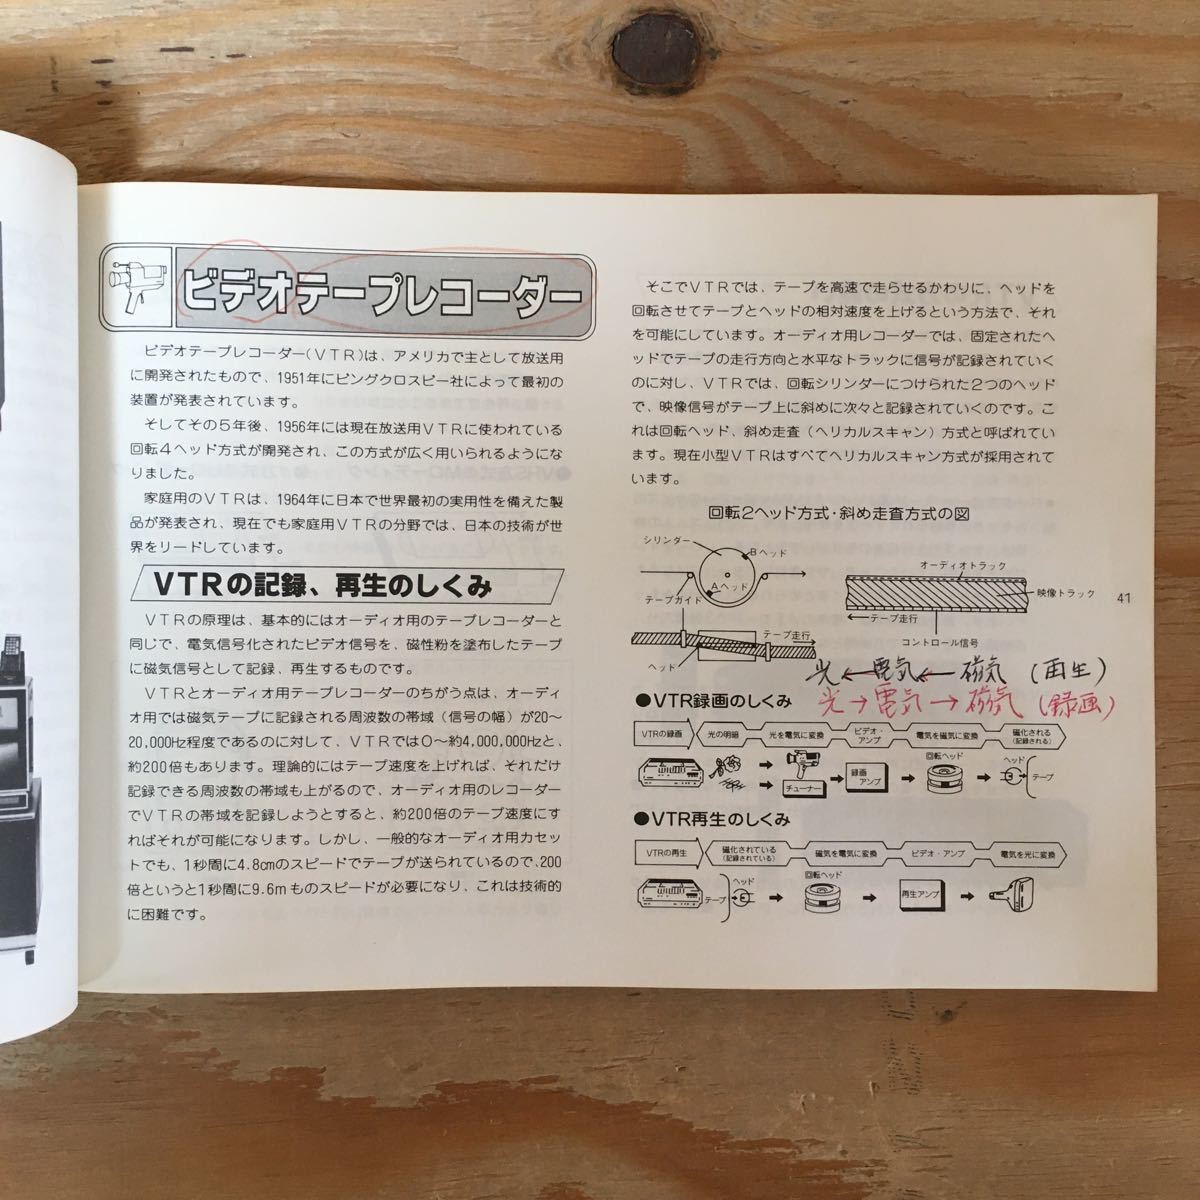 ビデオテープレコーダー
ビデオテープレコーダー(VTR)は、アメリカで主として放送用
に開発されたもので、1951年にビングクロスビー社によって最初の
装置が発表されています。
そしてその5年後、1956年には現在放送用VTRに使われている
回転4ヘッド方式が開発され、この方式が広く用いられるようにな
りました。
家庭用のVTRは、1964年に日本で世界最初の実用性を備えた製
品が発表され、現在でも家庭用VTRの分野では、日本の技術が世
界をリードしています。
VTRの記録、再生のしくみ
VTRの原理は、基本的にはオーディオ用のテープレコーダーと
同じで、電気信号化されたビデオ信号を、磁性粉を塗布したテープ
に磁気信号として記録、再生するものです。
VTRとオーディオ用テープレコーダーのちがう点は、オーディ
オ用では磁気テープに記録される周波数の帯域(信号の幅)が20〜
20,000Hz程度であるのに対して、VTRでは0〜約4,000,000Hzと、
約200倍もあります。理論的にはテープ速度を上げれば、それだけ
記録できる周波数の帯域も上がるので、オーディオ用のレコーダー
でVTRの帯域を記録しようとすると、約200倍のテープ速度にす
ればそれが可能になります。しかし、一般的なオーディオ用カセッ
トでも、1秒間に4.8cmのスピードでテープが送られているので、200
倍というと1秒間に9.6mものスピードが必要になり、これは技術的
に困難です。
そこでVTRでは、テープを高速で走らせるかわりに、ヘッドを
回転させてテープとヘッドの相対速度を上げるという方法で、それ
を可能にしています。オーディオ用レコーダーでは、固定されたヘ
ッドでテープの走行方向と水平なトラックに信号が記録されていく
のに対し、VTRでは、回転シリンダーにつけられた2つのヘッド
で、映像信号がテープ上に斜めに次々と記録されていくのです。こ
れは回転ヘッド、斜め走査(ヘリカルスキャン)方式と呼ばれてい
ます。現在小型VTRはすべてヘリカルスキャン方式が採用されて
います。
回転2ヘッド方式・斜め走査方式の図
シリンダー
Bヘッド
Aヘッド
テープガイド
テープ走行
ヘッド
オーディオトラック
映像トラック
テープ走行
コントロール信号
41
光←電気←磁気(再生)
光→電気→磁気(録画)
●VTR録画のしくみ
VTRの録画 光の明暗 光を電気に変換 ビデオ・アンプ 電気を磁気に変換 磁化される(記録される)
チューナー 録画アンプ 回転ヘッド ヘッド テープ
●VTR再生のしくみ
VTRの再生 磁化されている(記録されている) 磁気を電気に変換 ビデオ・アンプ 電気を光に変換
テープ ヘッド 回転ヘッド 再生アンプ